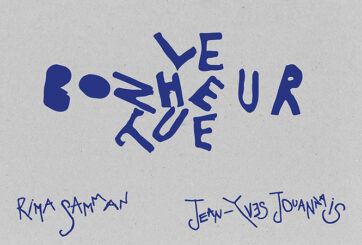 LE
BONHEUR
TUE
RIMA SAMMAN
JEAN-YVES JOUANNAIS